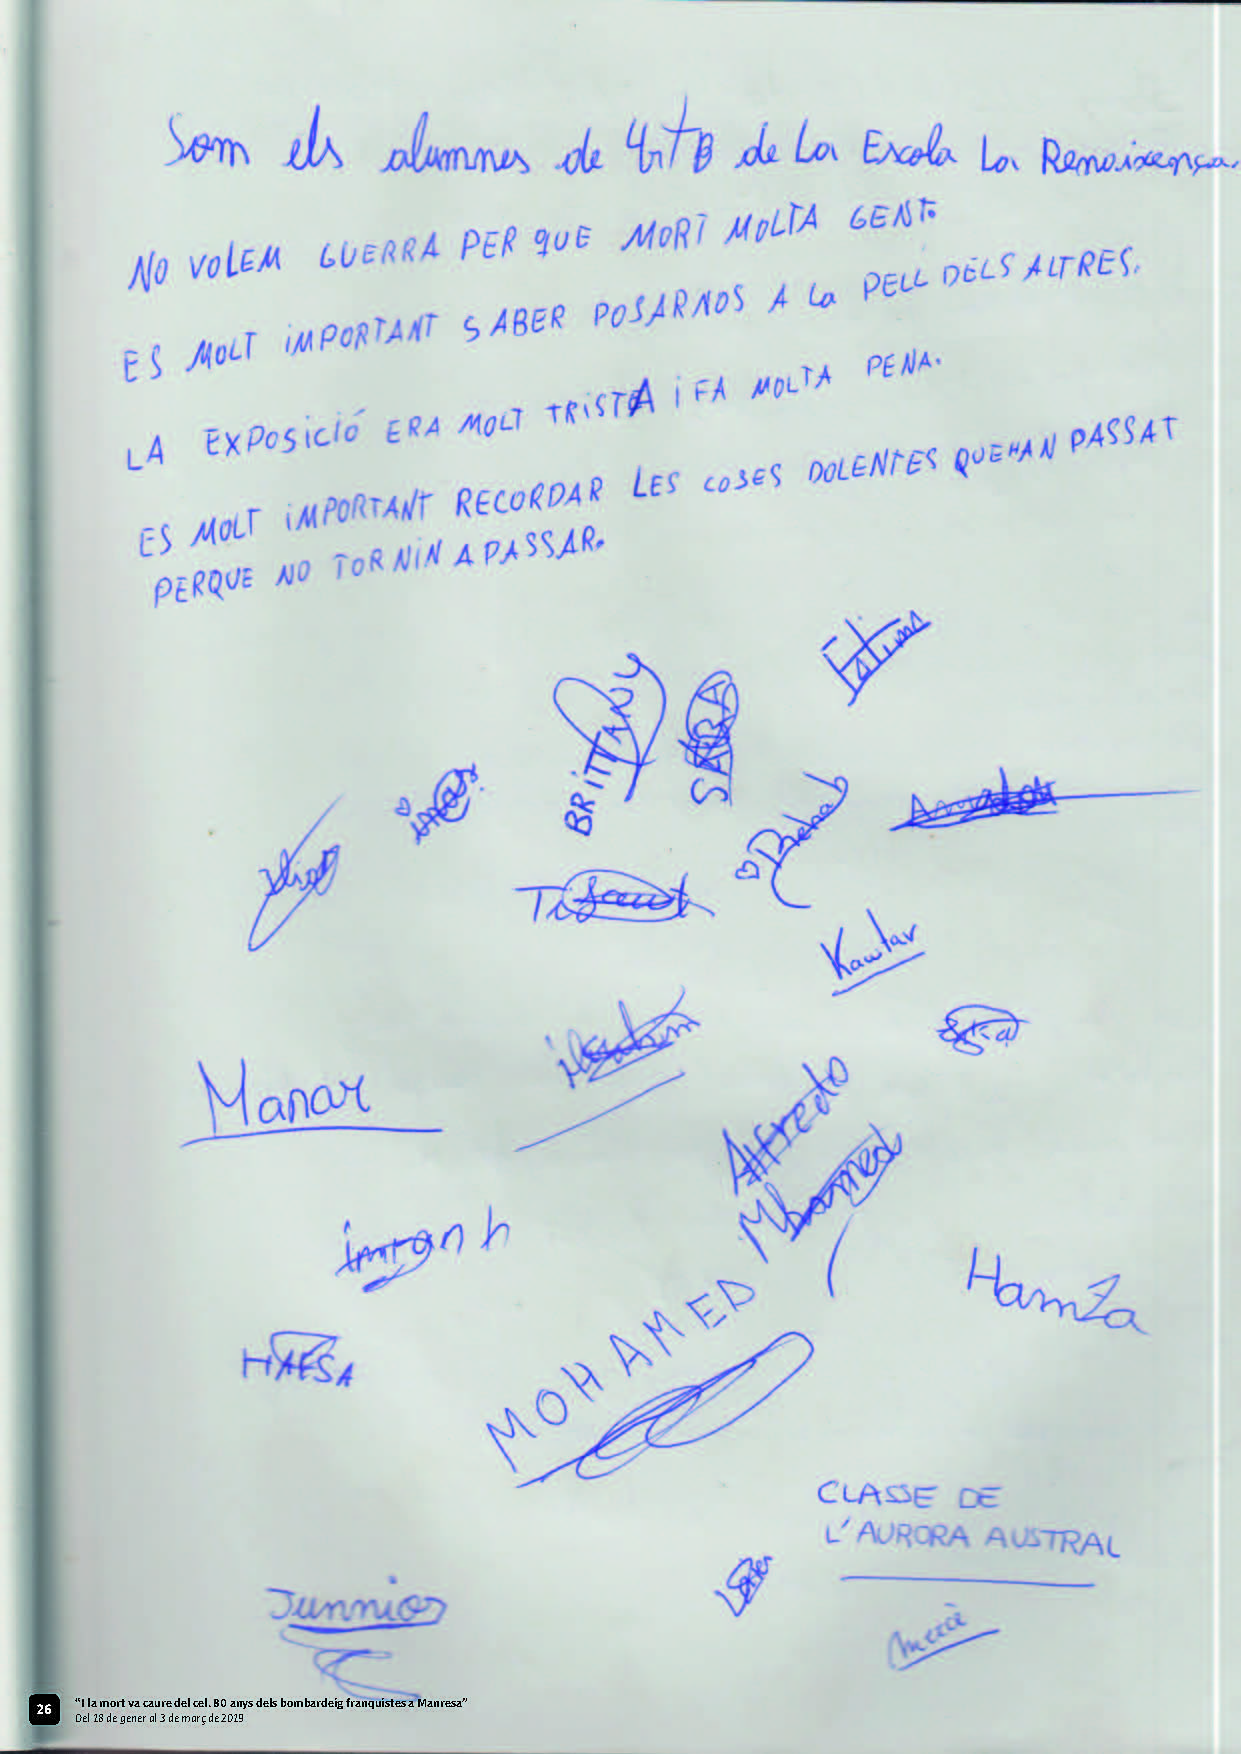 Som els alumnes de 4rt B de La Escola La Renaixença.
NO VOLEM GUERRA PER QUE MORT MOLTA GENT.
ES MOLT iMPORTANT SABER POSARNOS A La PELL DELS ALTRES.
LA EXPOSiCiÓ ERA MOLT TRiSTA i FA MOLTA PENA.
ES MOLT iMPORTANT RECORDAR LES COSES DOLENTES QUE HAN PASSAT
PERQUE NO TORNiN A PASSAR.
Fatima
BRiTTANY
SARA
Rehab
Kawtar
Manar
Alfredo
Mhamed
imran h
HamZa
MOHAMED
HAFSA
CLASSE DE
L'AURORA AUSTRAL
Junnior
Mercè
26
"I la mort va caure del cel. 80 anys dels bombardeig franquistes a Manresa"
Del 18 de gener al 3 de març de 2019